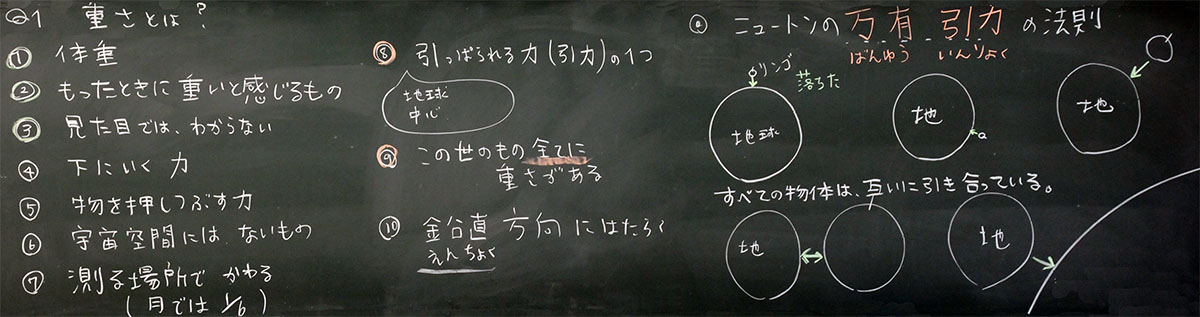 Q1 重さとは?
① 体重
② もったときに重いと感じるもの
③ 見た目では、わからない
④ 下にいく力
⑤ 物を押しつぶす力
⑥ 宇宙空間には ないもの
⑦ 測る場所で かわる
(月では 1/6)
⑧ 引っぱられる力(引力)の1つ
地球
中心
⑨ この世のもの全てに
重さがある
⑩ 鉛直方向にはたらく
えんちょく
◎ ニュートンの万有引力の法則
ばんゆう いんりょく
リンゴ
落ちた
地球
地
地
すべての物体は、互いに引き合っている。
地
地